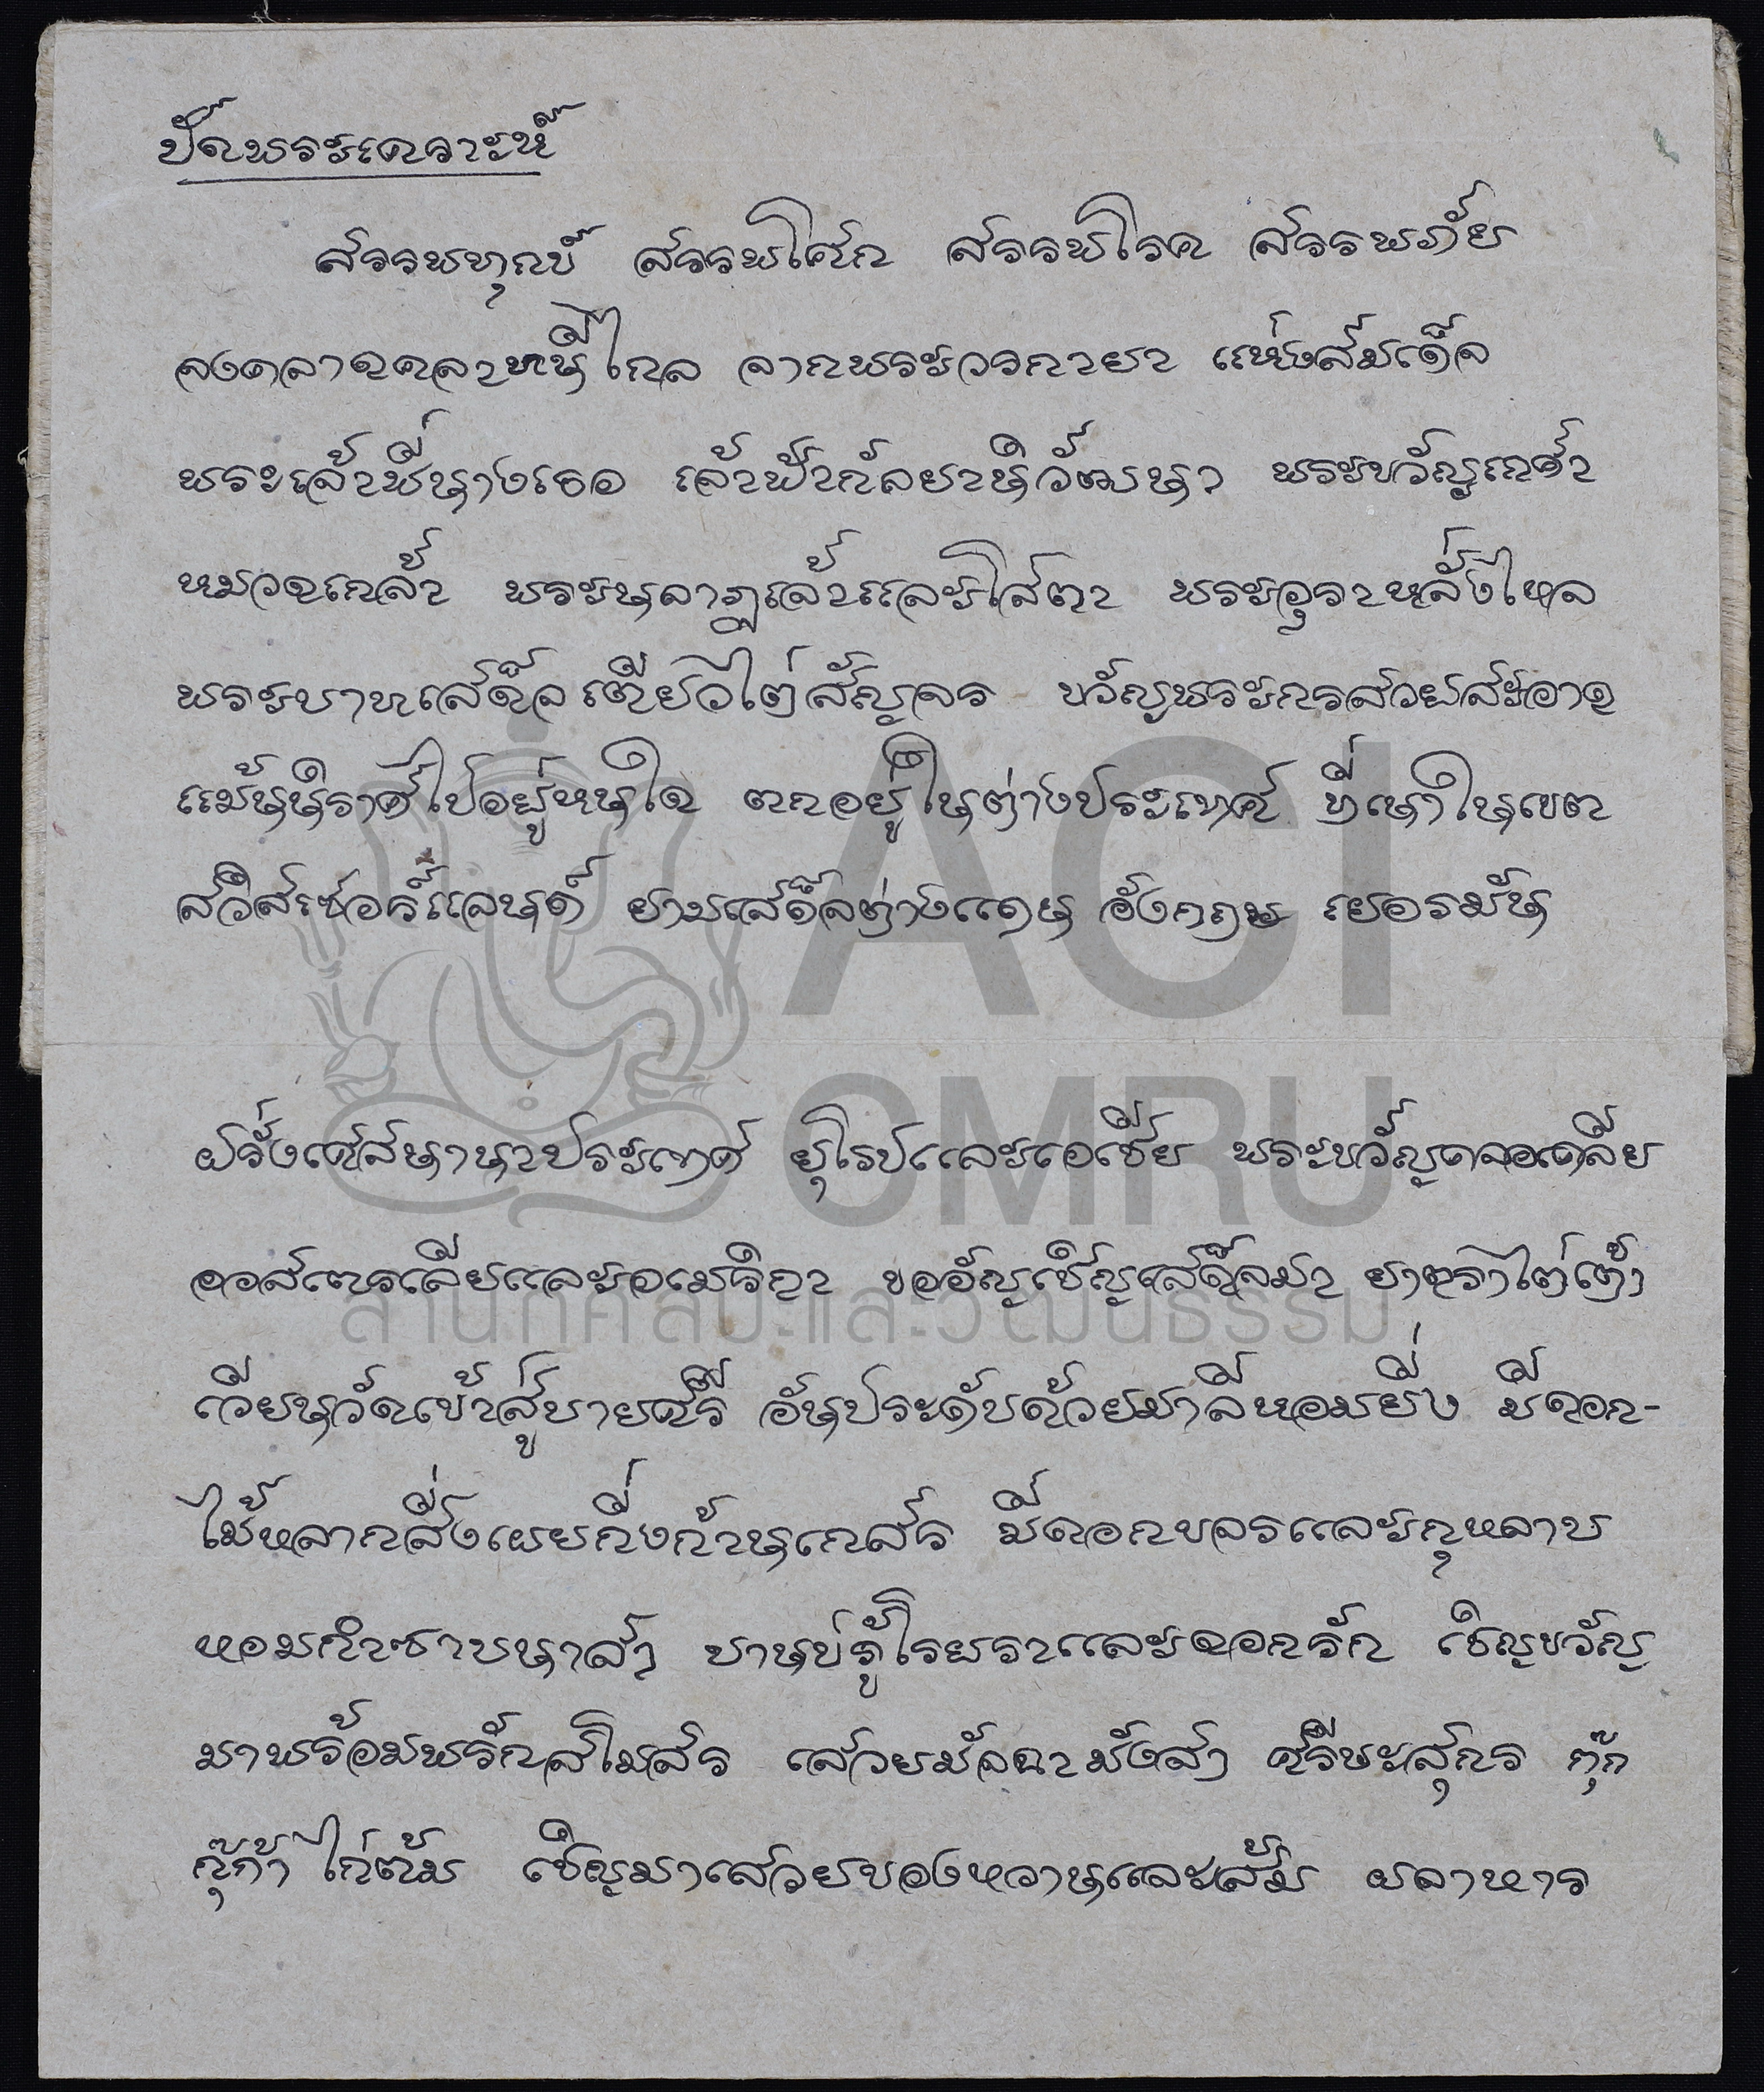 ปัดพระเคราะห์
สรรพทุกข์ สรรพโศก สรรพโรค สรรพภัย
จงคลาดคลาหนีไกล จากพระวรกายา แห่งสมเด็จ
พระเจ้าพี่นางเธอ เจ้าฟ้ากัลยาณิวัฒนา พระขวัญเกศา
หมวดเกล้า พระนลาฏเจ้าและโสตา พระอุราหลั่งไหล
พระบาทเสด็จเตียวไต่สัญจร ขวัญพระกรสวยสะอาด
แม้นนิราศไปอยู่หนใด ตกอยู่ในต่างประเทศ ที่เนาในเขต
สวิสเซอร์แลนด์ ยามเสด็จต่างแดน อังกฤษ เยอรมัน
ฝรั่งเศสนานาประเทศ ยุโรปและเอเชีย พระขวัญคลอเคลีย
ออสเตรเลียและอเมริกา ขออัญเชิญเสด็จมา ยาตราไต่เต้า
เวียนวัดเข้าสู่บายศรี อันประดับด้วยมาลีหอมยิ่ง มีดอก-
ไม้หลากสิ่งเผยกิ่งก้านเกสร มีดอกขจรและกุหลาบ
หอมกำซาบนาสา บานบ่รู้โรยราและดอกรัก เชิญขวัญ
มาพร้อมพรักสโมสร เสวยมัจฉามังสา ศรีษะสุกร กุ๊ก
กุ๊ก้า ไก่ต้ม เชิญมาเสวยของหวานและส้ม ผลาหาร
ACI
CMRU
สำนักศิลปะและวัฒนธรรม